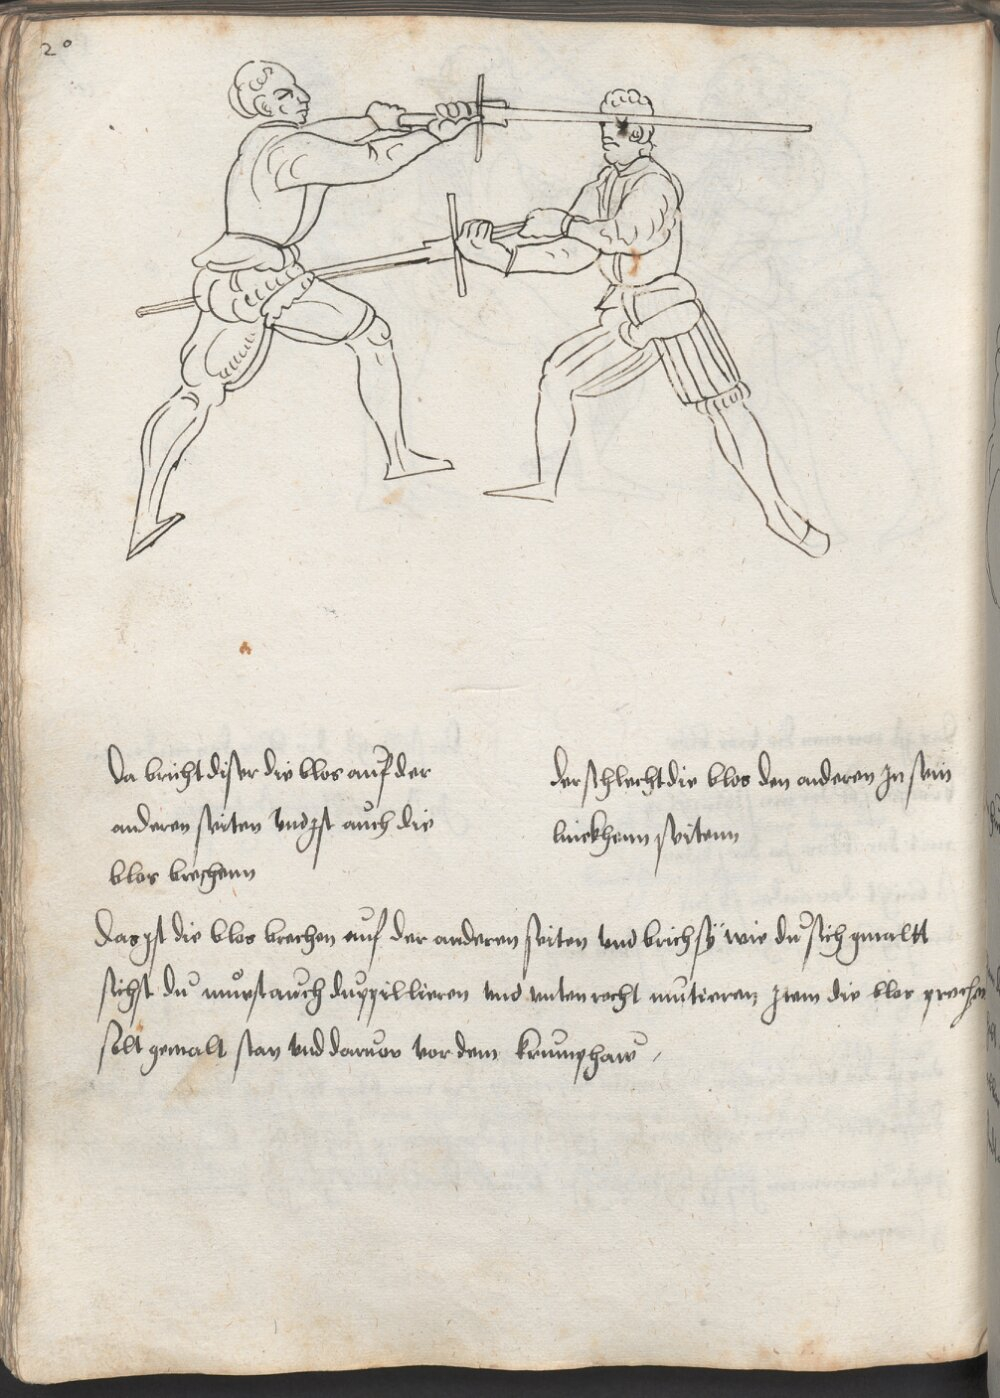 20
da bricht diser die blos auf der
anderen seiten und ist auch die
blos brechenn
der schlecht die blos den anderen in sein
linckhenn seitenn
das ist die blos brechen auf der anderen seiten und brich sy wie du sich gmaltt
sichst du muest auch duppillieren und unten recht mutieren item die blos prechen
solt gemalt stan und darvor vor dem krumphaw